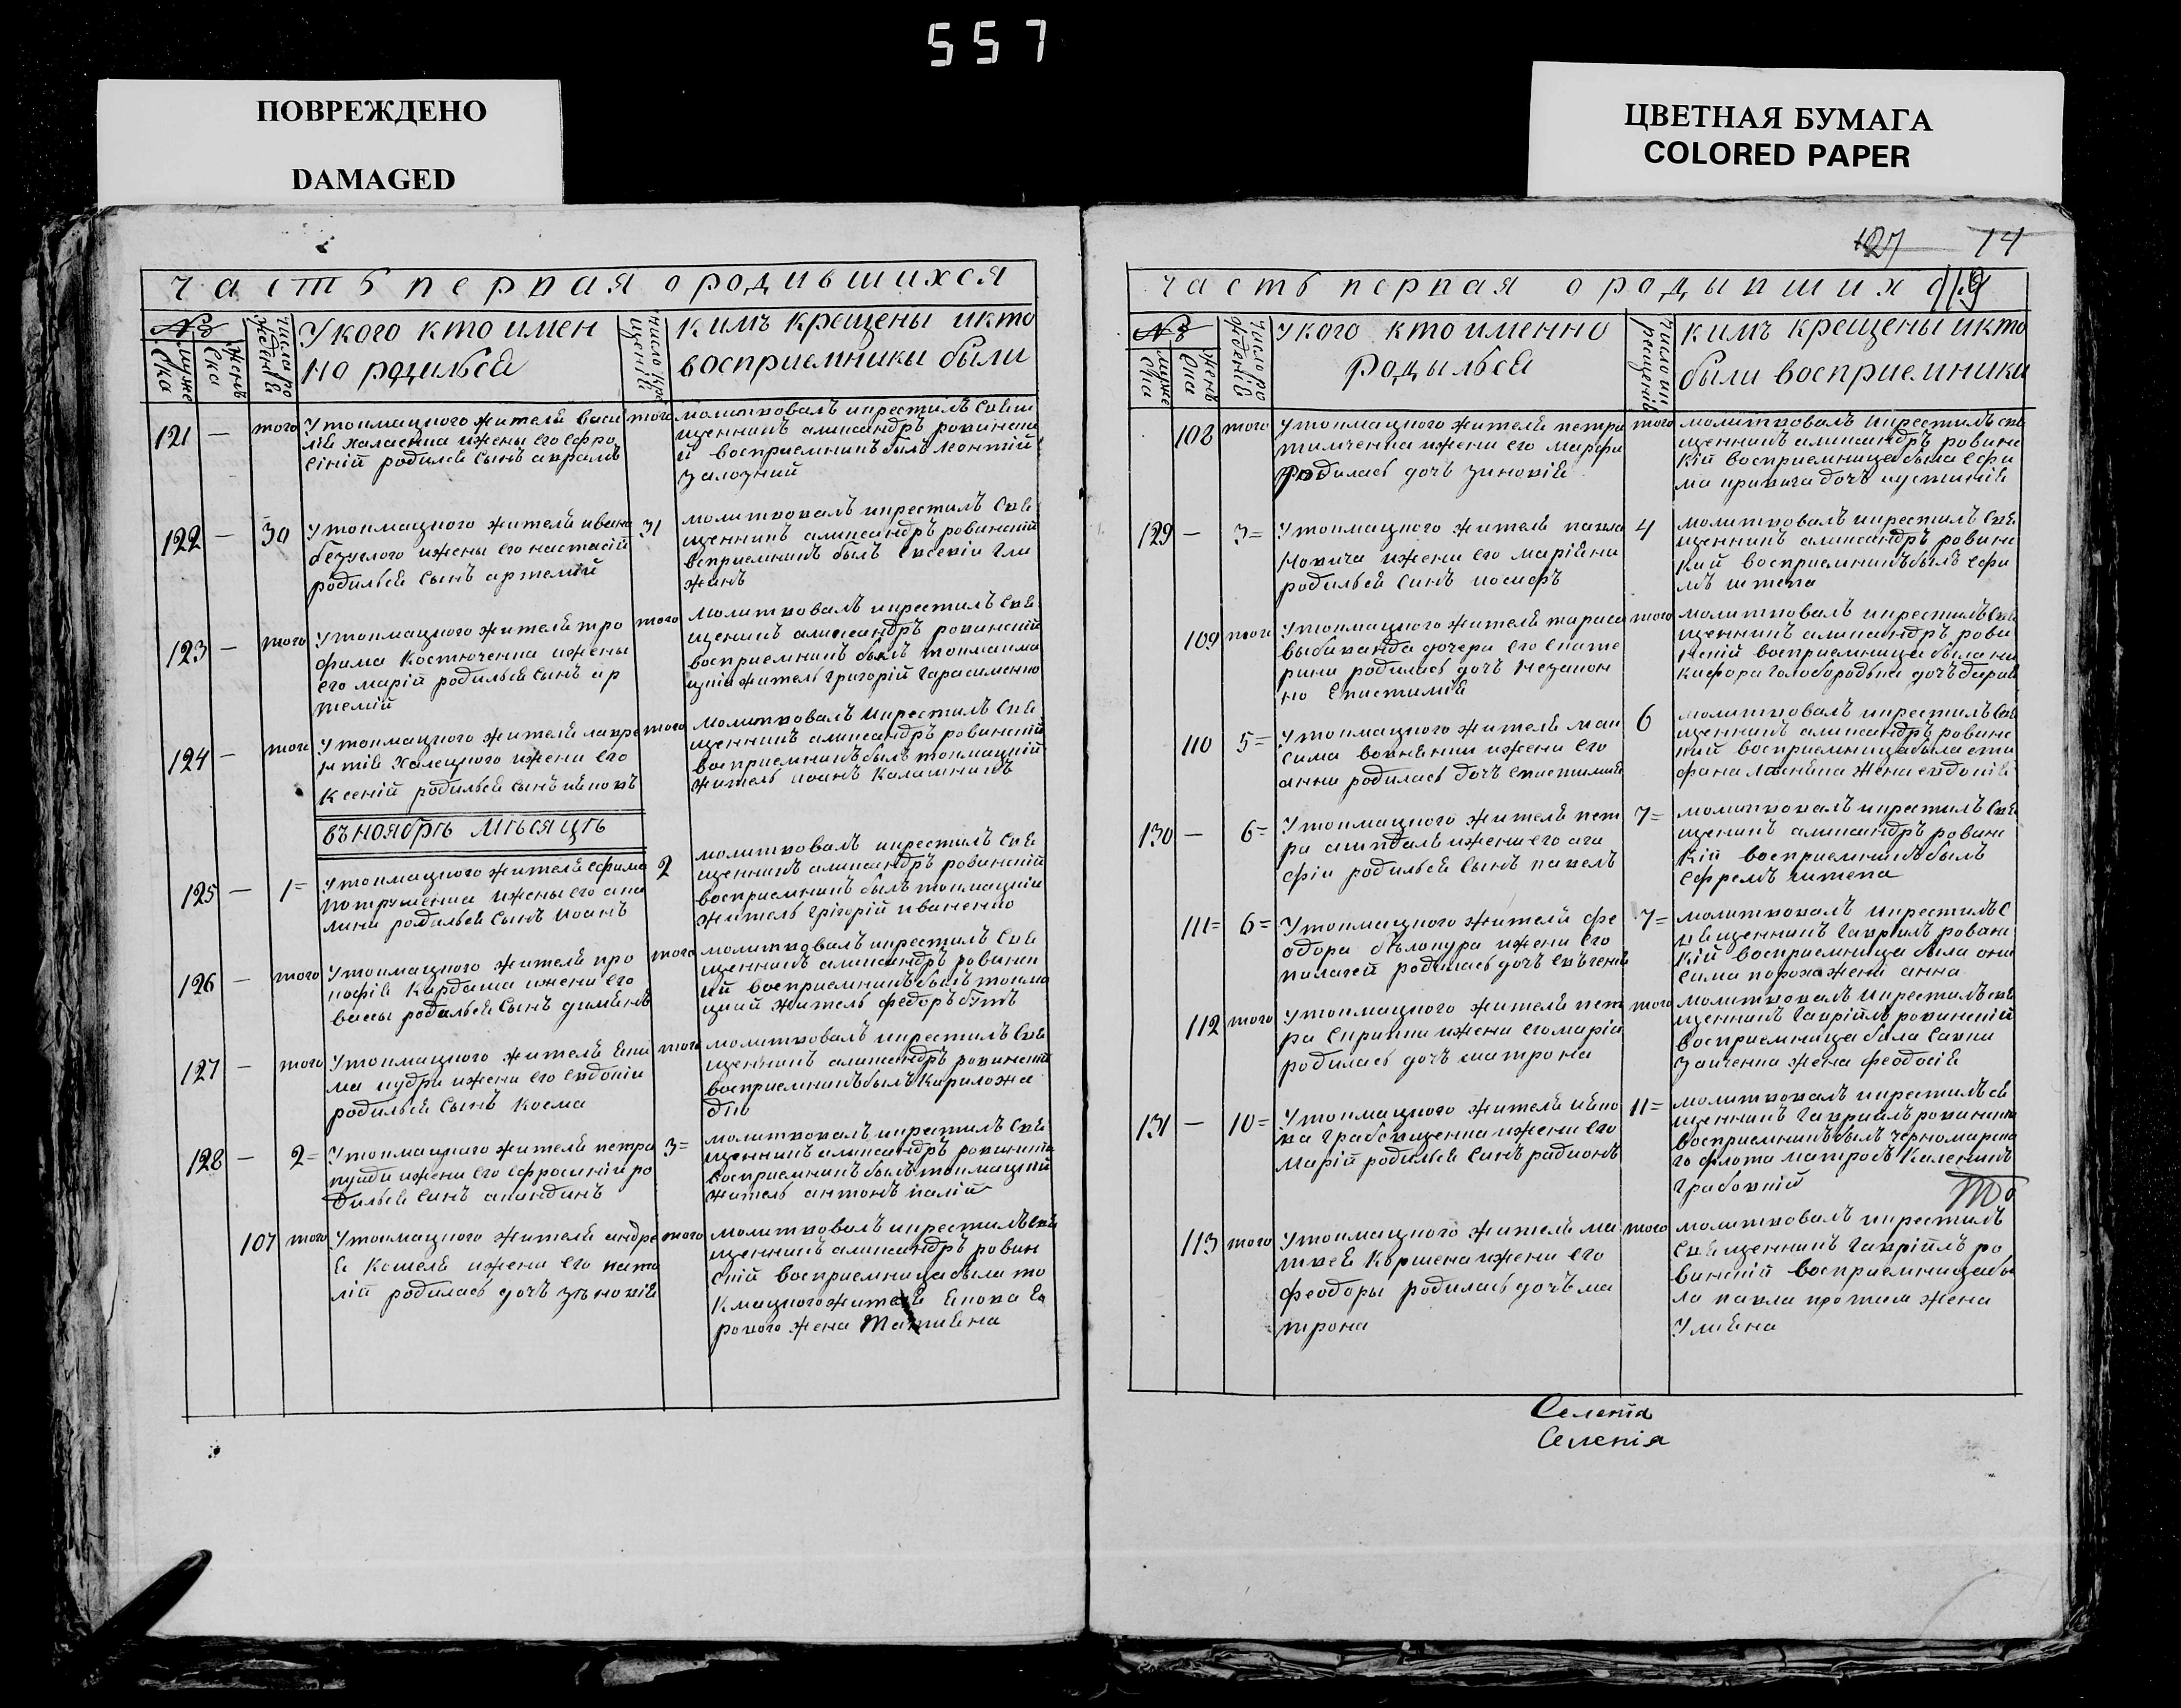 557
ПОВРЕЖДЕНО
DAMAGED
ЦВЕТНАЯ БУМАГА
COLORED PAPER
часть первая ородившихся
№
муже
ска
женъ
ска
числа ро
жденія
Укого кто имен
но родилься
число кре
щенія
кимъ крещены икто
восприемники были
121 — того
Утокмацкого жителя васи
лія халаенка ижены его ефро
сіній родился сынъ аврамъ
того
молитвовалъ икрестилъ свяш
щенникъ аликсандръ ровински
й восприемникъ былъ леонтій
залозний
122 — 30
Утокмацкого жителя ивана
безуглого ижены его настасій
родилься сынъ артемій
31
молитвовалъ икрестилъ свя
щенникъ аликсандръ ровинскій
восприемникъ былъ евсекіи гли
жинъ
123 — того
Утокмацкого жителя тро
фима костюченка ижены
его марій родилься сынъ ар
темій
того
молитвовалъ икрестилъ свя
щеникъ аликсандръ ровинскій
восприемникъ былъ токмакма
цкія житель григорій гарасименко
124 — того
Утокмацкого жителя лавре
нтія халецкого ижени его
ксеній родилься сынъ іяковъ
того
молитвовалъ икрестилъ свя
щенникъ аликсандръ ровинскій
восприемникъ былъ токмацкій
житель иоанъ калашникъ
въноябрѣ мѣсяцѣ
125 — 1=
Утокмацкого жителя ефима
потруменка ижены его аки
лини родилься сынъ иоанъ
2
молитвовалъ икрестилъ свя
щенникъ аликсандръ ровинскій
восприемникъ былъ токмацкіи
житель грігорій иваненко
126 — того
Утокмацкого жителя про
кофія кардаша ижени его
вассы родилься сынъ димиянъ
того
молитвовалъ икрестилъ свя
щенникъ аликсандръ ровинск
ій восприемникъ былъ токма
цкий житель федоръ бутъ
127 — того
Утокмацкого жителя яки
ма кудри ижени его евдокіи
родилься сынъ косма
того
молитвовалъ икрестилъ свя
щенникъ аликсандръ ровинскій
восприемникъ былъ кирило жа
дко
128 — 2=
Утокмацкого жителя петра
пуйди ижени его ефросиній ро
дилься синъ акиндинъ
3=
молитвовалъ икрестилъ свя
щенникъ аликсандръ ровинскій
восприемникъ былъ токмацкій
житель антонъ палій
107 того
Утокмацкого жителя андре
я кошеля ижени его ната
лій родилась дочъ зѣновія
того
молитвовалъ икрестилъ свя
щенникъ аликсандръ ровин
скій восприемница была то
кмацкого жителя якова яв
рового жена татияна
127 14
119
часть первая ородывшихся
№
муже
ска
женъ
ска
число ро
жденія
Укого кто именно
родылься
число ик
рещенія
кимъ крещены икто
были восприемники
108 того
Утокмацкого жителя петра
тимченка ижени его марфи
родилась дочъ зиновія
того
молитвовалъ икрестилъ свя
щенникъ аликсандръ ровинс
кій восприемница была ефи
ма дочъ иустинія
129 — 3=
Утокмацкого жителя павла
новича ижени его маріяни
родилься синъ иосифъ
4
молитвовалъ икрестилъ свя
щенникъ аликсандръ ровинс
кий восприемникъ былъ ефи
мъ штепа
109 того
Утокмацкого жителя тараса
выбиванда дочери его екате
рини родилась дочъ незакон
но епистимія
того
молитвовалъ икрестилъ свя
щенникъ аликсандръ рови
нскій восприемница была ни
кифора голобородька дочъ дарія
110 5=
Утокмацкого жителя мак
сима ижени его
анни родилась дочъ епистимия
6
молитвовалъ икрестилъ свя
щенникъ аликсандръ ровинс
кий восприемница была сти
фана жена евдокія
130 — 6=
Утокмацкого жителя пет
ра ижени его ага
фіи родилься сынъ павелъ
7=
молитвовалъ икрестилъ свя
щеникъ аликсандръ ровинс
кій восприемникъ былъ
ефремъ штепа
111= 6=
Утокмацкого жителя фе
одора бѣлокура ижени его
пилагеи родилась дочъ евъгения
7=
молитвовалъ икрестилъ с
вященникъ гавриилъ ровин
кій восприемница была они
сима пороха жена анна
112 того
Утокмацкого жителя пет
ра скрипки ижени его маріи
родилась дочъ матрона
того
молитвовалъ икрестилъ свя
щенникъ гавріилъ ровинскій
восприемница била савки
заиченка жена феодосія
131 — 10=
Утокмацкого жителя ияко
ва грабовщенка ижени его
марій родилься синъ радионъ
11=
молитвовалъ икрестилъ свя
щенникъ гавриилъ ровински
восприемникъ былъ черноморско
го флота матросъ каленикъ
грабовкій
113 того
Утокмацкого жителя ма
твея коршена ижени его
феодоры родилась дочъ ма
трона
того
молитвовалъ икрестилъ
священникъ гавріилъ ро
винскій восприемница бы
ла павла жена
улияна
Селенія
Селенія